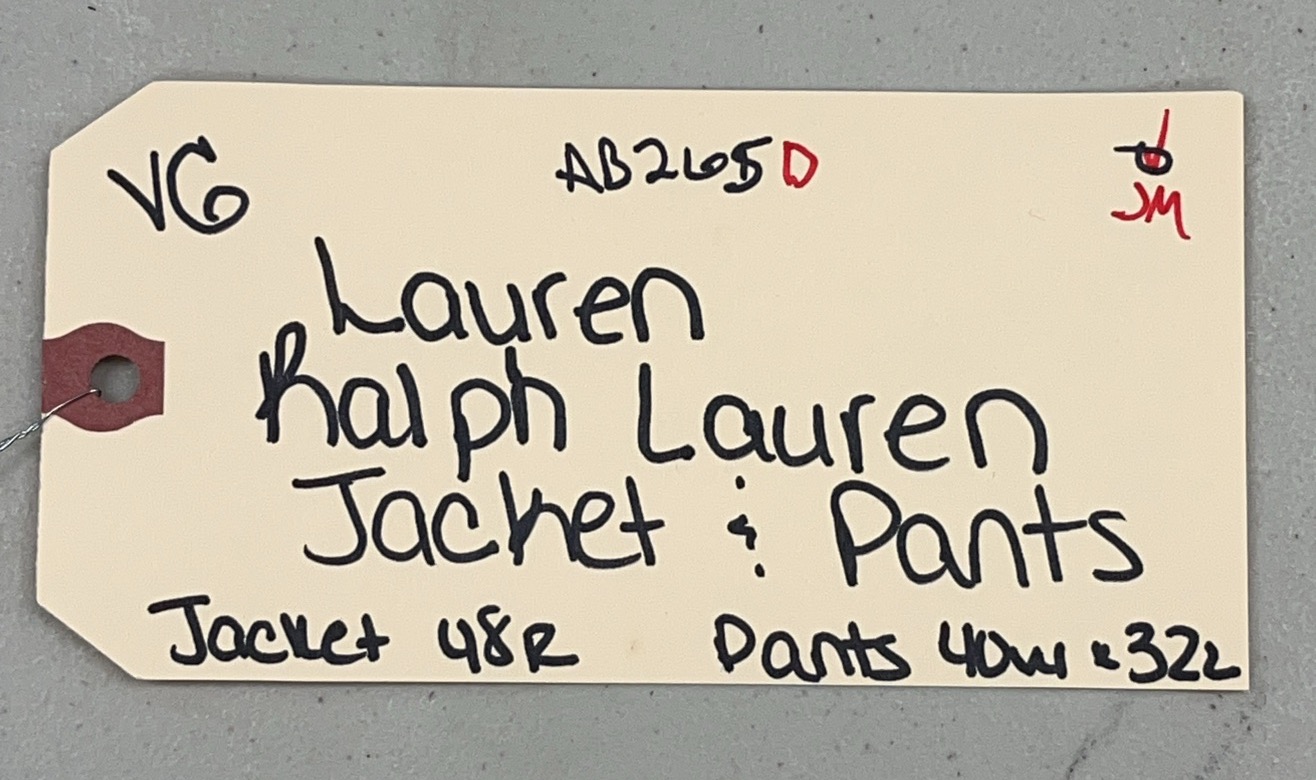 VG AB265D
JM
Lauren
Ralph Lauren
Jacket & Pants
Jacket 48R Pants 40w x 32L